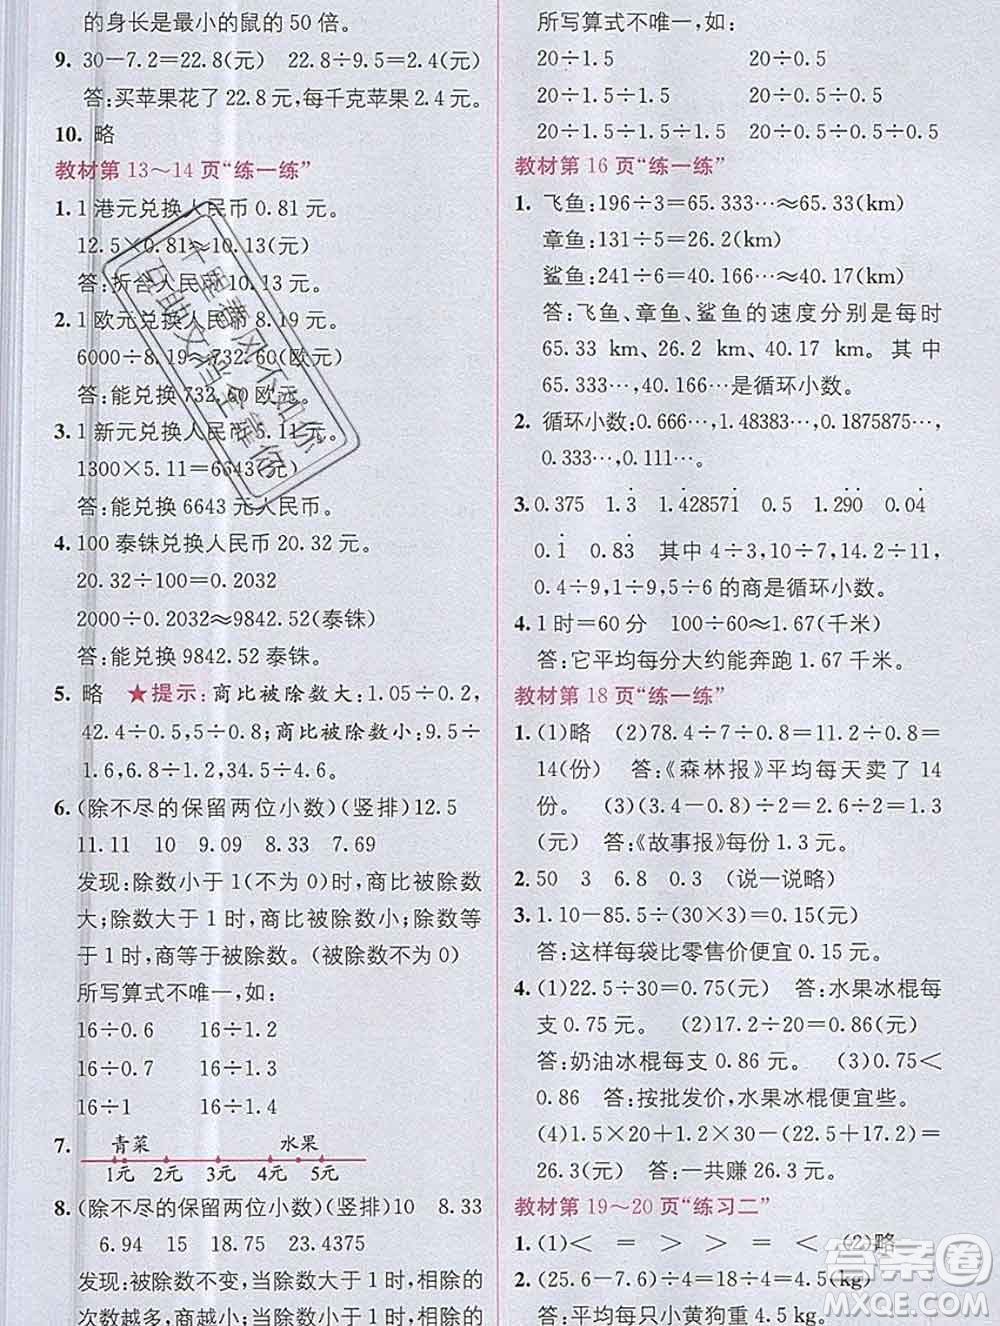 的身长是最小的鼠的50倍。
9. 30－7.2＝22.8(元)　22.8÷9.5＝2.4(元)
答:买苹果花了22.8元,每千克苹果2.4元。
10. 略
教材第13～14页“练一练”
1. 1港元兑换人民币0.81元。
12.5×0.81≈10.13(元)
答:折合人民币10.13元。
2. 1欧元兑换人民币8.19元。
6000÷8.19≈732.60(欧元)
答:能兑换732.60欧元。
3. 1新元兑换人民币5.11元。
1300×5.11＝6643(元)
答:能兑换6643元人民币。
4. 100泰铢兑换人民币20.32元。
20.32÷100＝0.2032
2000÷0.2032≈9842.52(泰铢)
答:能兑换9842.52泰铢。
5. 略　★提示:商比被除数大:1.05÷0.2,
42.4÷0.5,5÷0.8;商比被除数小:9.5÷
1.6,6.3÷1.2,34.5÷4.6。
6. (除不尽的保留两位小数)(竖排)12.5
11.11　10　9.09　8.33　7.69
发现:除数小于1(不为0)时,商比被除数
大;除数大于1时,商比被除数小;除数等
于1时,商等于被除数。(被除数不为0)
所写算式不唯一,如:
16÷0.6　16÷1.2
16÷0.8　16÷1.3
16÷1　16÷1.4
7. 青菜　水果
1元　2元　3元　4元　5元
8. (除不尽的保留两位小数)(竖排)10　8.33
6.94　15　18.75　23.4375
发现:被除数不变,当除数大于1时,相除的
次数越多,商越小;当除数小于1时,相除的
所写算式不唯一,如:
20÷1.5　20÷0.5
20÷1.5÷1.5　20÷0.5÷0.5
20÷1.5÷1.5÷1.5　20÷0.5÷0.5÷0.5
教材第16页“练一练”
1. 飞鱼:196÷3＝65.333…≈65.33(km)
章鱼:131÷5＝26.2(km)
鲨鱼:241÷6＝40.166…≈40.17(km)
答:飞鱼、章鱼、鲨鱼的速度分别是每时
65.33 km、26.2 km、40.17 km。其中
65.333…,40.166…是循环小数。
2. 循环小数:0.666…,1.48383…,0.1875875…,
0.333…,0.111…。
3. 0.375　1.3̇　1.4̇28571̇　0.5　1.29̇0̇　0.04̇
0.1̇　0.83̇　其中4÷3,10÷7,71÷55,
0.4÷9,1÷9,5÷6的商是循环小数。
4. 1时＝60分　100÷60≈1.67(千米)
答:它平均每分大约能奔跑1.67千米。
教材第18页“练一练”
1. (1)略　(2)78.4÷7÷0.8＝11.2÷0.8＝
14(份)　答:《森林报》平均每天卖了14
份。　(3)(3.4－0.8)÷2＝2.6÷2＝1.3
(元)　答:《故事报》每份1.3元。
2. 50　3　6.8　0.3　(说一说略)
3. 1.10－85.5÷(30×3)＝0.15(元)
答:这样每袋比零售价便宜0.15元。
4. (1)22.5÷30＝0.75(元)　答:水果冰棍每
支0.75元。　(2)17.2÷20＝0.86(元)
答:奶油冰棍每支0.86元。　(3)0.75＜
0.86　答:按批发价,水果冰棍便宜些。
(4)1.5×20＋2×20－(22.5＋17.2)＝
30.3(元)　答:一共赚26.3元。
教材第19～20页“练习二”
1. (1)＜　＝　＞　＞　＝　＜　(2)略
2. (25.6－7.6)÷4＝18÷4＝4.5(kg)
答:平均每只小黄狗重4.5kg。
答案圈
MXQE.COM